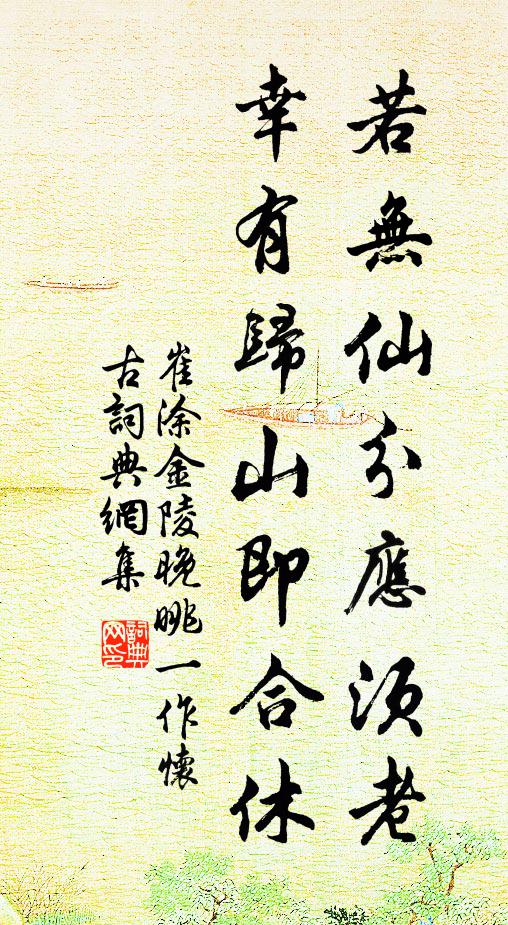 若無仙分應須老
幸有歸山即合休
崔涂金陵晚眺一作懷
古詞典網集
詞典网印